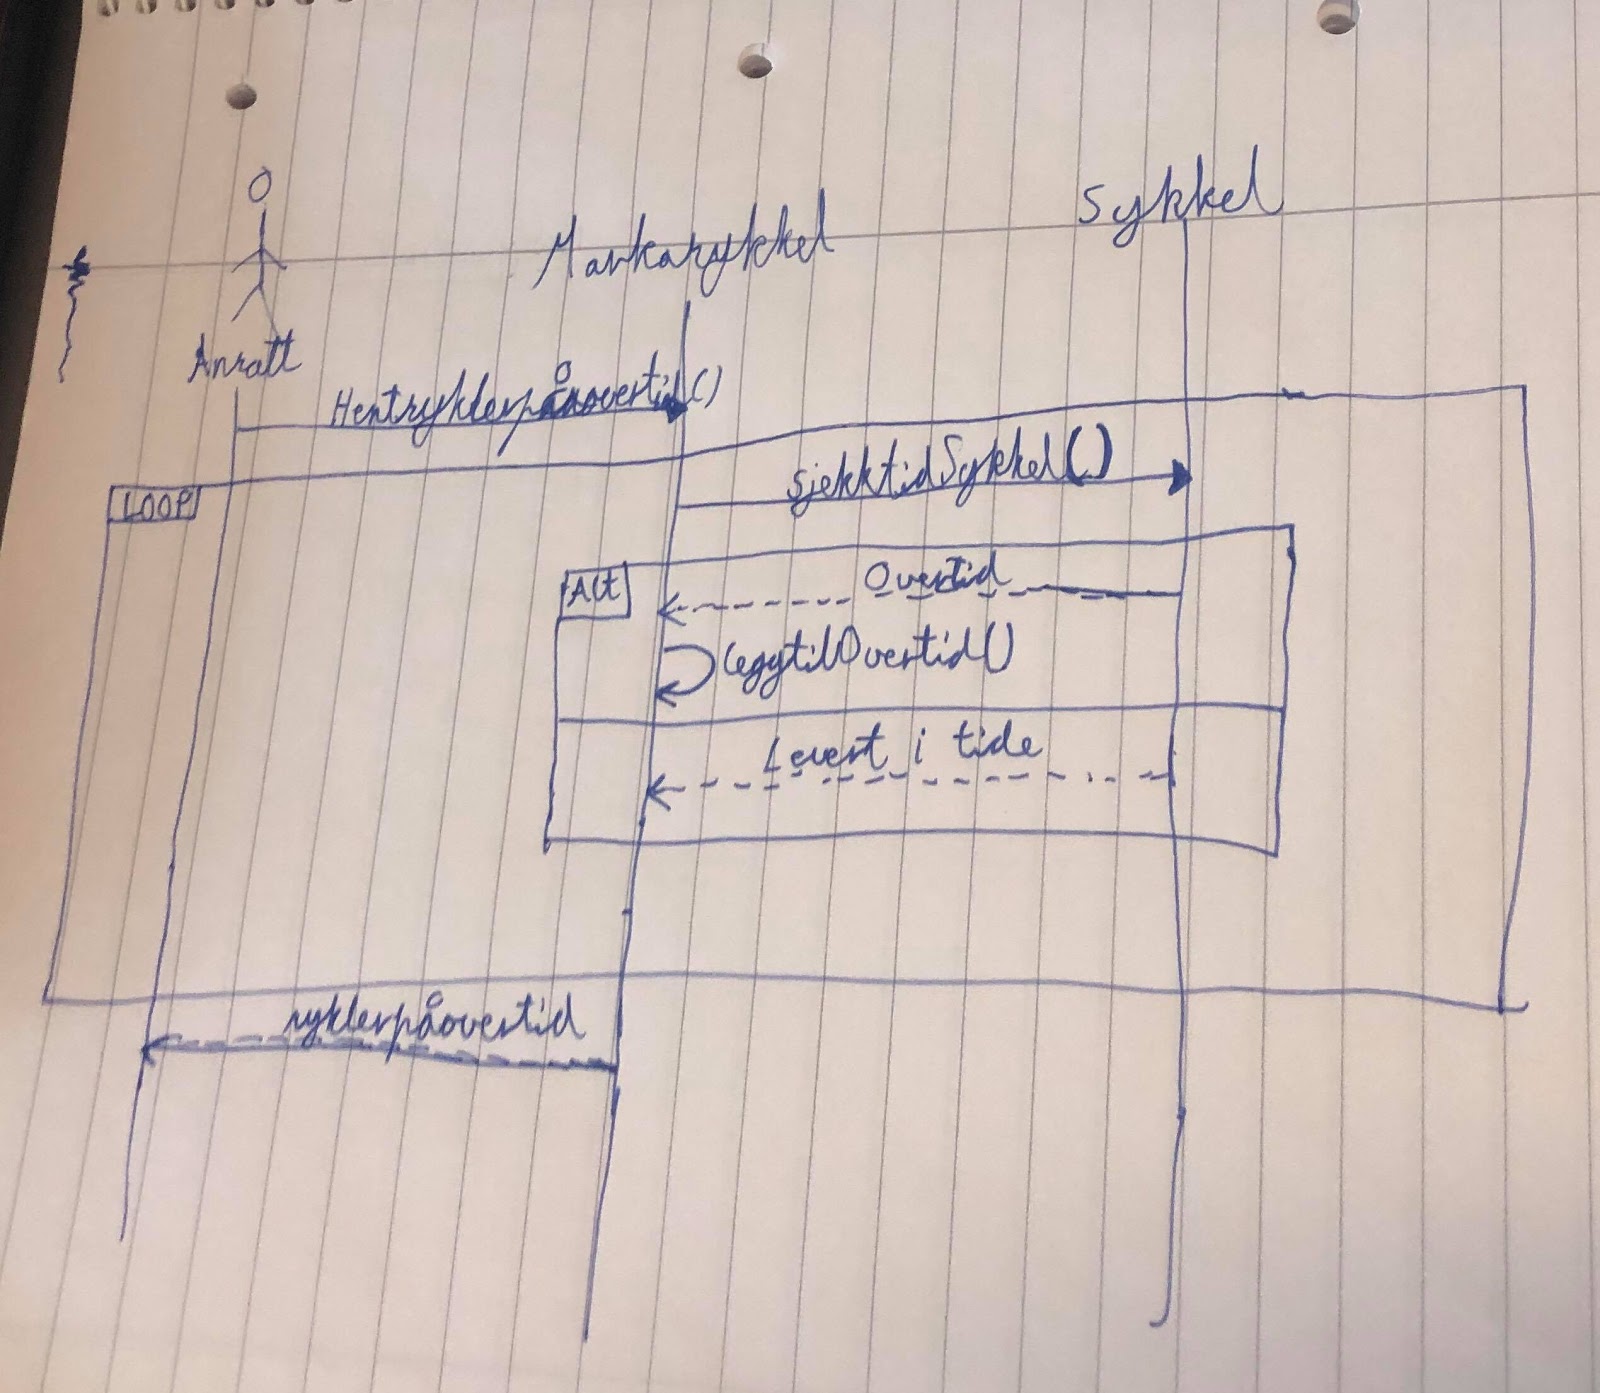 Sykkel
Markasykkel
Ansatt
Hentsyklerpåovertid()
sjekktidSykkel()
LOOP
Alt
Overtid
leggtilOvertid()
Levert i tide
syklerpåovertid